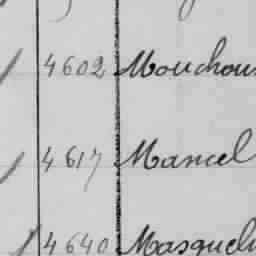 4602 Mouchou
4617 Mancel
4640 Masqueli